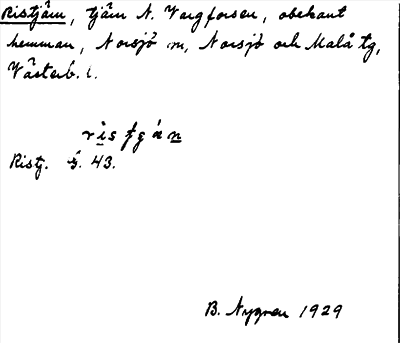 Ristjärn, tjärn N. Vargforsen, obekant
hemman, Norsjö sn, Norsjö och Malå tg,
Västerb. l.
Ristj. G. 43.
B. Nygren 1929